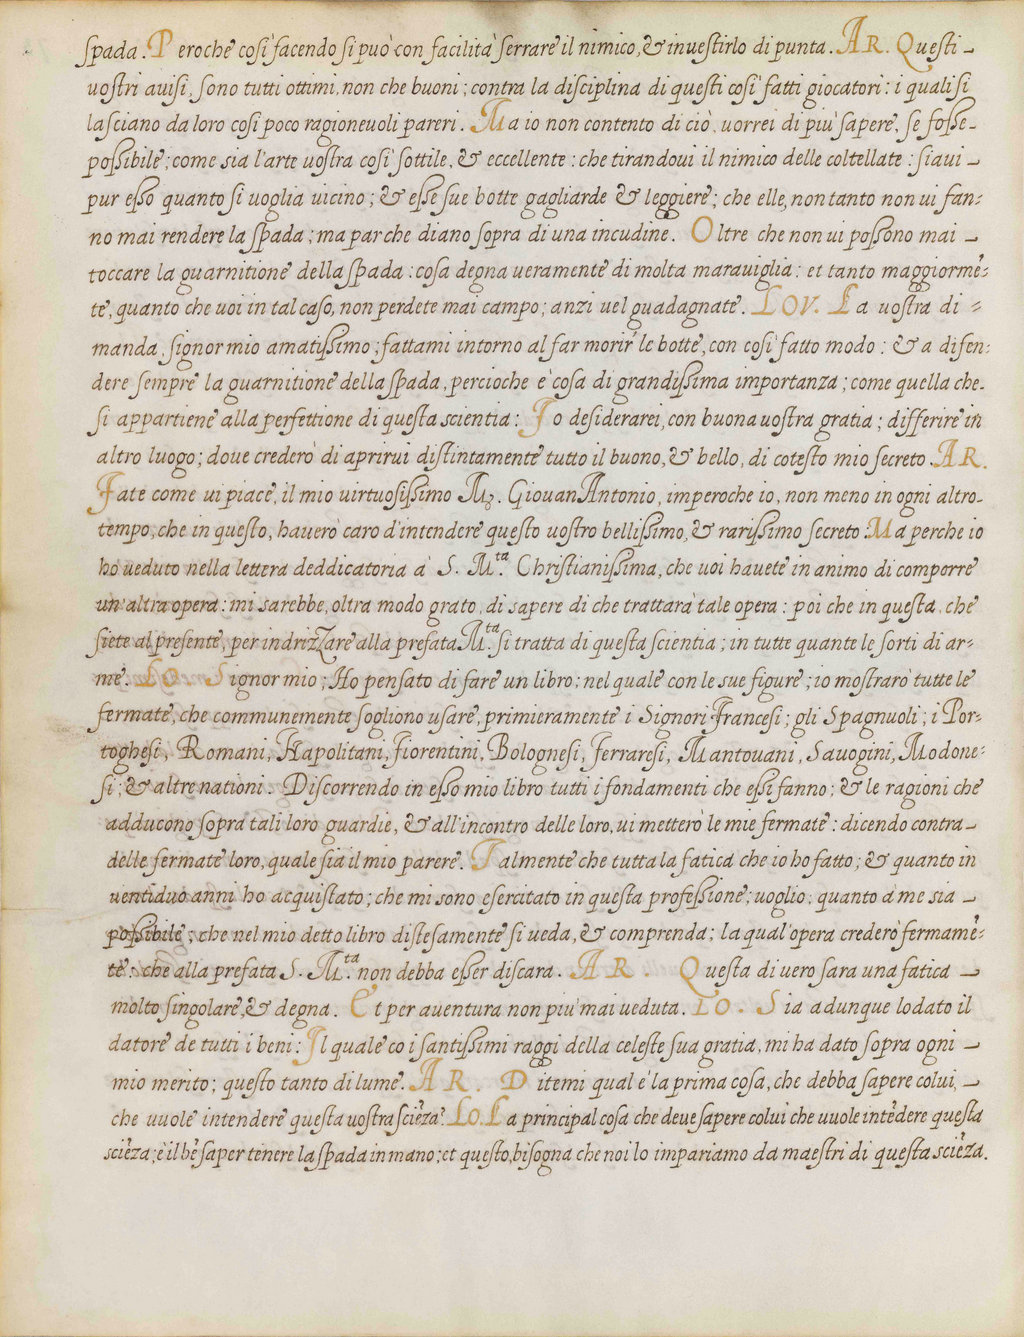 spada. Peroche così facendo si può con facilità serrare il nimico, & inuestirlo di punta. AR. Questi
uostri auisi, sono tutti ottimi, non che buoni; contra la disciplina di questi così fatti giocatori: i quali si
lasciano da loro così poco ragioneuoli pareri. Ma io non contento di ciò, uorrei di più sapere, se fosse
possibile; come sia l'arte uostra così sottile, & eccellente: che tirandoui il nimico delle coltellate: siaui
pur esso quanto si uoglia uicino; & esse sue botte gagliarde & leggiere; che elle, non tanto non ui fan:
no mai rendere la spada; ma par che diano sopra di una incudine. Oltre che non ui possono mai
toccare la guarnitione della spada: cosa degna ueramente di molta marauiglia: et tanto maggiormē:
te, quanto che uoi in tal caso, non perdete mai campo; anzi uel guadagnate. LOV. La uostra di:
manda, signor mio amatissimo; fattami intorno al far morir le botte, con così fatto modo: & a difen:
dere sempre la guarnitione della spada, percioche è cosa di grandissima importanza; come quella che
si appartiene alla perfettione di questa scientia: Io desiderarei, con buona uostra gratia; differire in
altro luogo; doue crederò di aprirui distintamente tutto il buono, & bello, di cotesto mio secreto. AR.
Fate come ui piace, il mio uirtuosissimo M. GiouanAntonio, imperoche io, non meno in ogni altro
tempo, che in questo, hauerò caro d'intendere questo uostro bellissimo, & rarissimo secreto. Ma perche io
ho ueduto nella lettera deddicatoria à S. M.ta Christianissima, che uoi hauete in animo di comporre
un'altra opera: mi sarebbe, oltra modo grato, di sapere di che trattarà tale opera: poi che in questa, che
siete al presente, per indrizzare alla prefata M.ta si tratta di questa scientia; in tutte quante le sorti di ar:
me. LO. Signor mio; Ho pensato di fare un libro; nel quale con le sue figure; io mostrarò tutte le
fermate, che communemente sogliono usare, primieramente i Signori Francesi; gli Spagnuoli; i Por:
toghesi, Romani, Napolitani, Fiorentini, Bolognesi, Ferraresi, Mantouani, Sauogini, Modone:
si; & altre nationi. Discorrendo in esso mio libro tutti i fondamenti che essi fanno; & le ragioni che
adducono sopra tali loro guardie, & all'incontro delle loro, ui metterò le mie fermate: dicendo contra
delle fermate loro, quale sia il mio parere. Talmente che tutta la fatica che io ho fatto; & quanto in
uentiduo anni ho acquistato; che mi sono esercitato in questa professione; uoglio, quanto à me sia
possibile; che nel mio detto libro distesamente si ueda, & comprenda; la qual'opera crederò fermamē:
te: che alla prefata S. M.ta non debba esser discara. AR. Questa di uero sara una fatica
molto singolare, & degna. Et per auentura non più mai ueduta. LO. Sia adunque lodato il
datore de tutti i beni: Il quale co i santissimi raggi della celeste sua gratia, mi ha dato sopra ogni
mio merito; questo tanto di lume. AR. Ditemi qual è la prima cosa, che debba sapere colui,
che uuole intendere questa uostra sciēza? LO. La principal cosa che deue sapere colui che uuole intēdere questa
sciēza; è il bē saper tenere la spada in mano; et questo, bisogna che noi lo impariamo da maestri di questa sciēza.